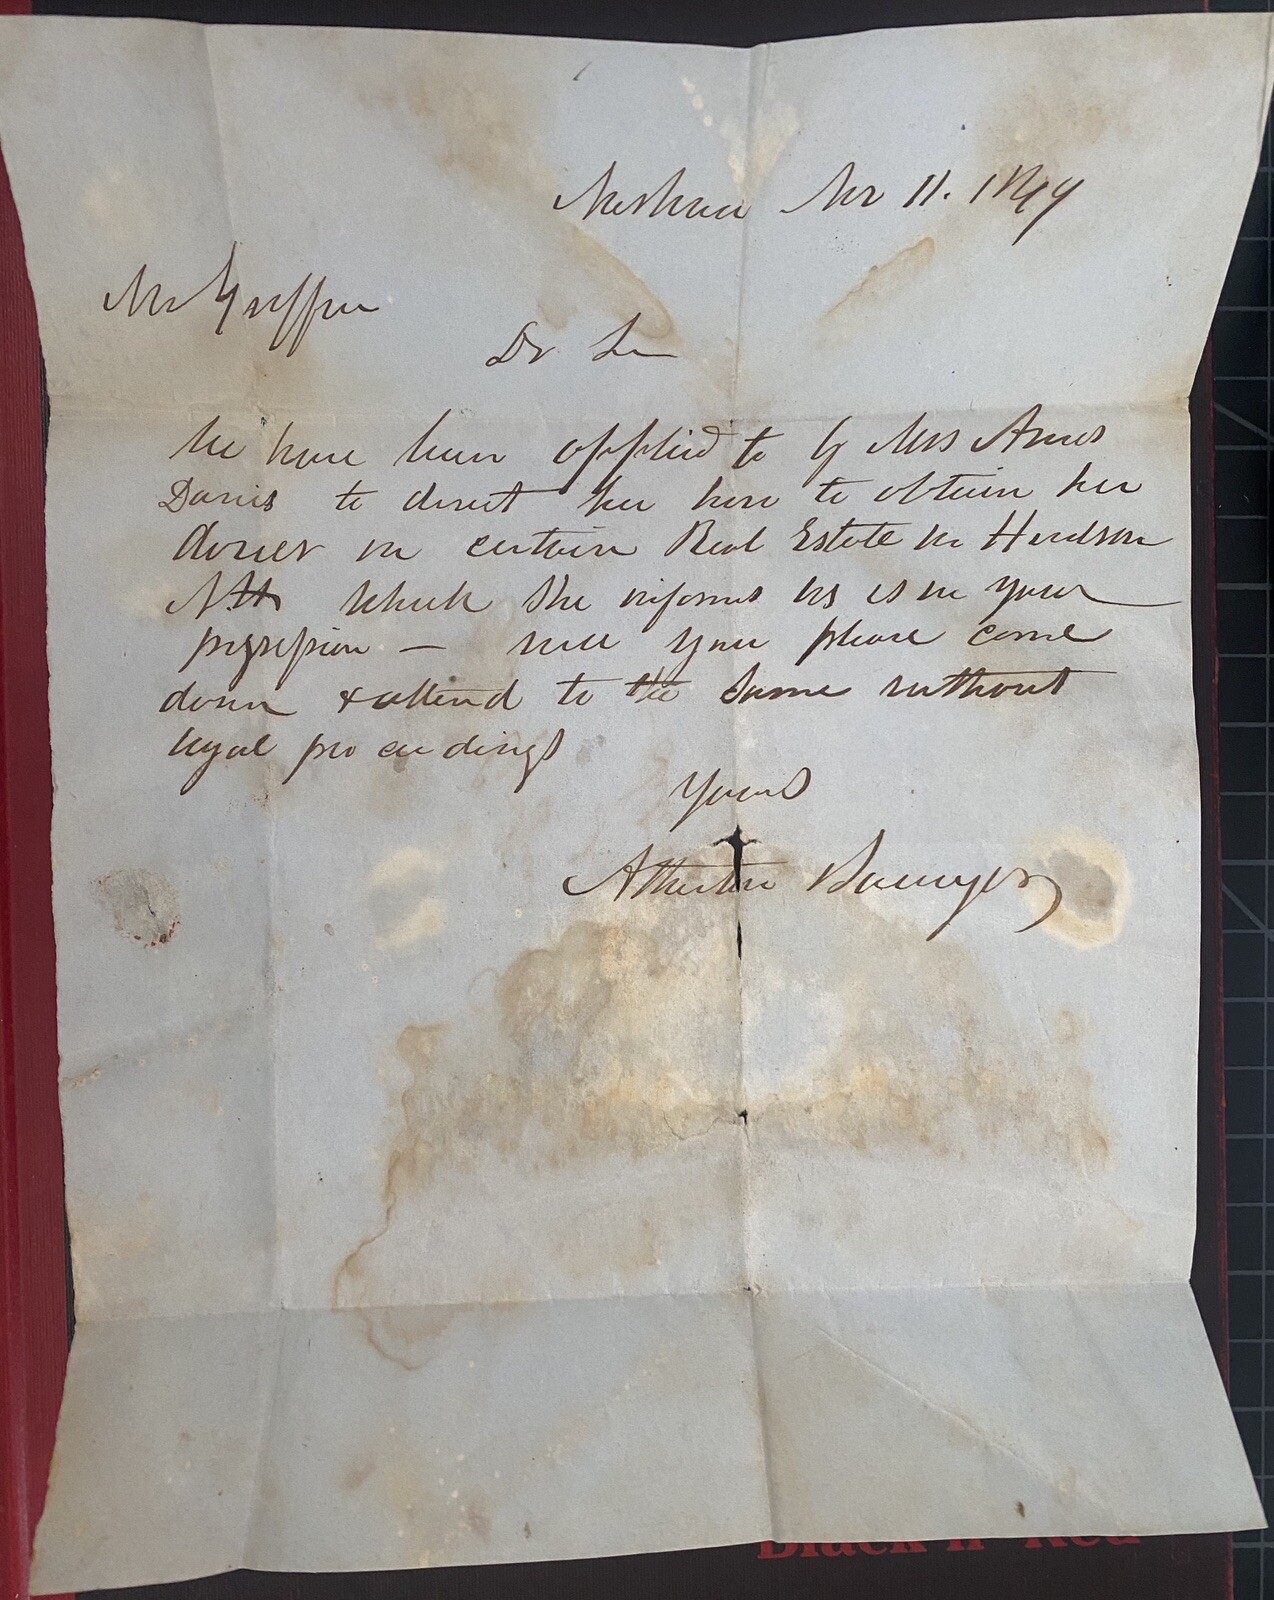 Nashua Nov 11. 1849
Mr Griffin
Dr Sir
We have been applied to by Mrs Amos
Davis to direct her how to obtain her
dower in certain Real Estate in Hudson
NH which she informs us is in your
possession — will you please come
down & attend to the same without
legal proceedings
Yours
Atherton & Sawyer
Black n' Red